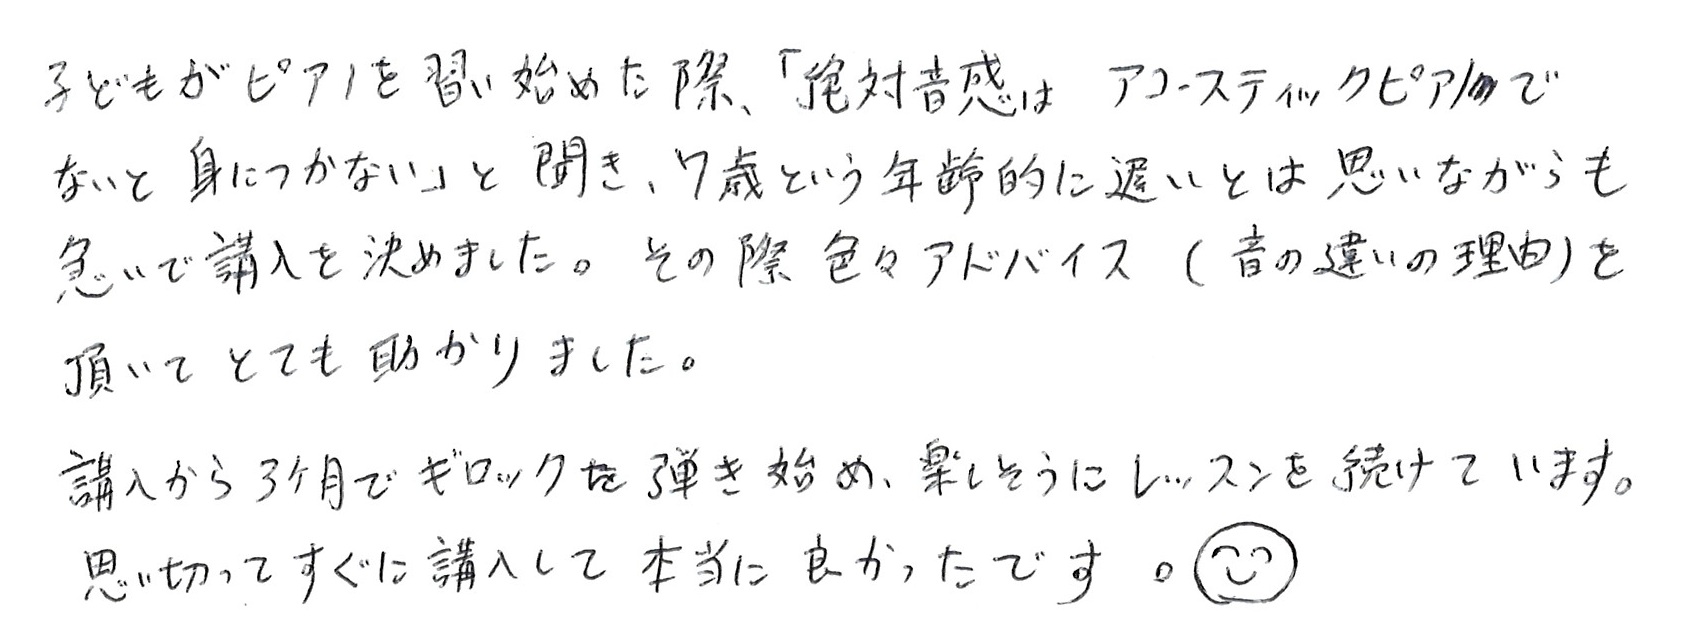 子どもがピアノを習い始めた際、「絶対音感は アコースティックピアノで
ないと 身につかない」と 聞き、7歳という年齢的に遅いとは思いながらも
急いで講入を決めました。その際 色々アドバイス (音の違いの理由)を
頂いて とても 助かりました。
講入から3ケ月でギロックを弾き始め、楽しそうにレッスンを続けています。
思い切ってすぐに講入して本当に良かったです。